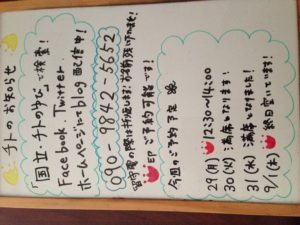 チトのお知らせ
「国立・チトのゆび」で検索!
Facebook, Twitter
ホームページにてblog配信中!
090-9842-5652
留守電の際は折返します!お名前
ご予約可能です!
今週のご予約予定
29(月) 12:30〜14:00
30(火) 満席となります!
31(水) 満席となりました!
9/1(木) 終日空いてます!